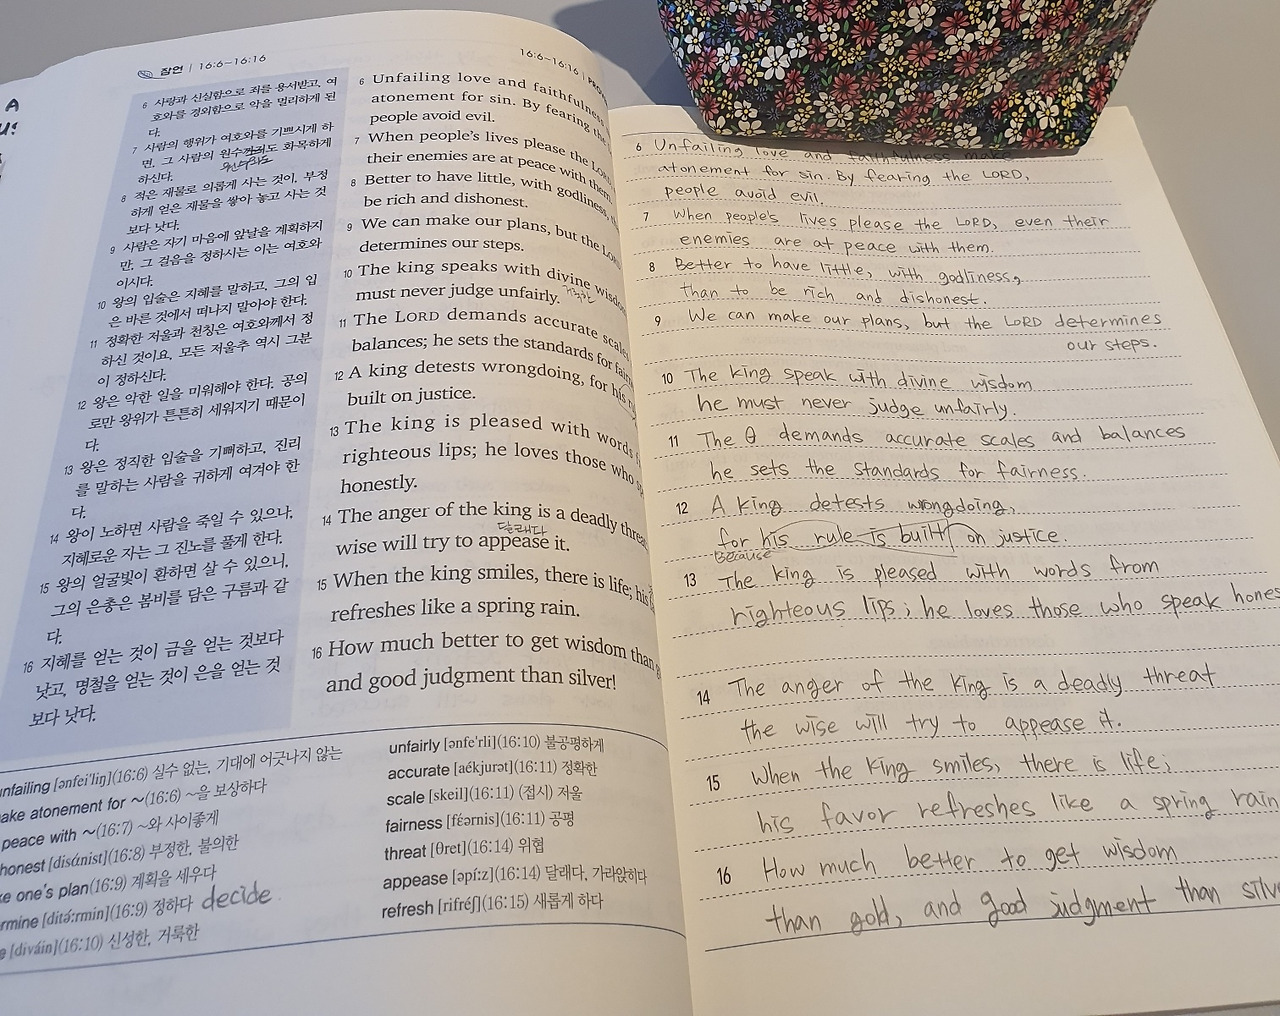 잠언 | 16:6-16:16
6 사랑과 신실함으로 죄를 용서받고, 여
호와를 경외함으로 악을 멀리하게 된
다.
7 사람의 행위가 여호와를 기쁘시게 하
면, 그 사람의 원수까지도 화목하게
하신다.
8 적은 재물로 의롭게 사는 것이, 부정
하게 얻은 재물을 쌓아 놓고 사는 것
보다 낫다.
9 사람은 자기 마음에 앞날을 계획하지
만, 그 걸음을 정하시는 이는 여호와
이시다.
10 왕의 입술은 지혜를 말하고, 그의 입
은 바른 것에서 떠나지 말아야 한다.
11 정확한 저울과 천칭은 여호와께서 정
하신 것이요, 모든 저울추 역시 그분
이 정하신다.
12 왕은 악한 일을 미워해야 한다. 공의
로만 왕위가 튼튼히 세워지기 때문이
다.
13 왕은 정직한 입술을 기뻐하고, 진리
를 말하는 사람을 귀하게 여겨야 한
다.
14 왕이 노하면 사람을 죽일 수 있으나,
지혜로운 자는 그 진노를 풀게 한다.
15 왕의 얼굴빛이 환하면 살 수 있으니,
그의 은총은 봄비를 담은 구름과 같
다.
16 지혜를 얻는 것이 금을 얻는 것보다
낫고, 명철을 얻는 것이 은을 얻는 것
보다 낫다.
16:6-16:16
6 Unfailing love and faithfulness
atonement for sin. By fearing the
people avoid evil.
7 When people's lives please the LORD
their enemies are at peace with them.
8 Better to have little, with godliness,
be rich and dishonest.
9 We can make our plans, but the LORD
determines our steps.
10 The king speaks with divine wisdom
must never judge unfairly. 거룩한
11 The LORD demands accurate scales
balances; he sets the standards for
12 A king detests wrongdoing, for his
built on justice.
13 The king is pleased with words
righteous lips; he loves those who
honestly.
14 The anger of the king is a deadly
달래다
wise will try to appease it.
15 When the king smiles, there is life; his
refreshes like a spring rain.
16 How much better to get wisdom than
and good judgment than silver!
unfailing [ənfei'liŋ](16:6) 실수 없는, 기대에 어긋나지 않는
ake atonement for ~(16:6) ~을 보상하다
peace with ~(16:7) ~와 사이좋게
honest [disάnist](16:8) 부정한, 불의한
ke one's plan(16:9) 계획을 세우다
rmine [ditə́:rmin](16:9) 정하다 decide
e [diváin](16:10) 신성한, 거룩한
unfairly [ənfe'rli](16:10) 불공평하게
accurate [aékjurət](16:11) 정확한
scale [skeil](16:11) (접시) 저울
fairness [féərnis](16:11) 공평
threat [θret](16:14) 위협
appease [əpí:z](16:14) 달래다, 가라앉히다
refresh [rifréʃ](16:15) 새롭게 하다
6 Unfailing love and faithfulness make
atonement for sin. By fearing the LORD,
people avoid evil.
7 When people's lives please the LORD, even their
enemies are at peace with them.
8 Better to have little, with godliness,
than to be rich and dishonest.
9 We can make our plans, but the LORD determines
our steps.
10 The king speak with divine wisdom
he must never judge unfairly.
11 The θ demands accurate scales and balances
he sets the standards for fairness.
12 A king detests wrongdoing,
for his rule is built on justice.
because
13 The king is pleased with words from
righteous lips; he loves those who speak hones
14 The anger of the king is a deadly threat
the wise will try to appease it.
15 When the king smiles, there is life;
his favor refreshes like a spring rain
16 How much better to get wisdom
than gold, and good judgment than silve